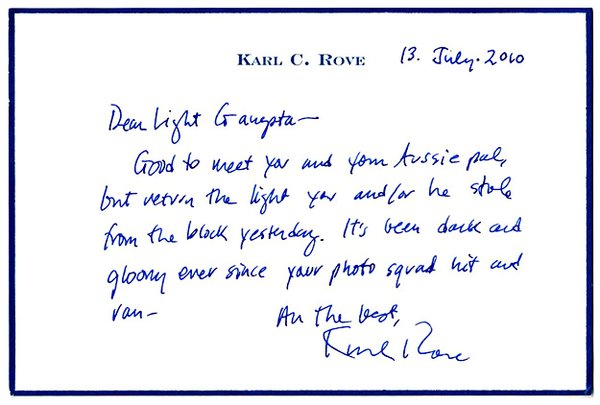 KARL C. ROVE 13. July. 2010
Dear Light Gangsta—
Good to meet you and your Aussie pal,
but return the light you and/or he stole
from the block yesterday. It's been dark and
gloomy ever since your photo squad hit and
ran—
All the best,
Karl Rove